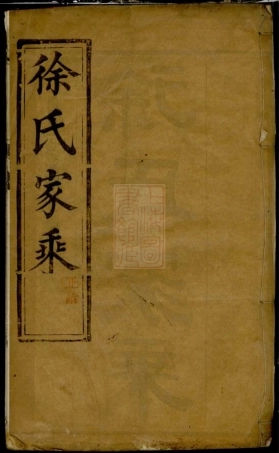 徐氏家乘